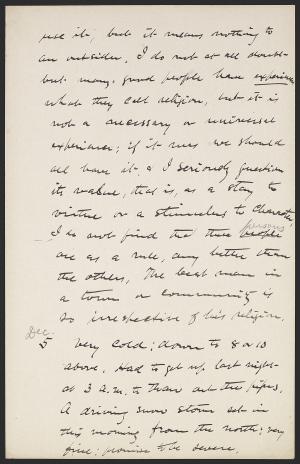 use it, but it means nothing to
an outsider. I do not at all doubt
but many good people have experience
what they call religion, but it is
not a necessary or universal
experience; if it was we should
all have it, & I seriously question
its value, that is, as a stay to
virtue or a stimulus to character.
I do not find that these people
persons
are as a rule, any better than
the others. The best man in
a town or community is
so irrespective of his religion.
Dec.
5 Very cold; down to 8 or 10
above. Had to get up last night
at 3 a.m. to thaw out the pipes.
A driving snow storm set in
this morning from the north; very
fine; promises to be severe.